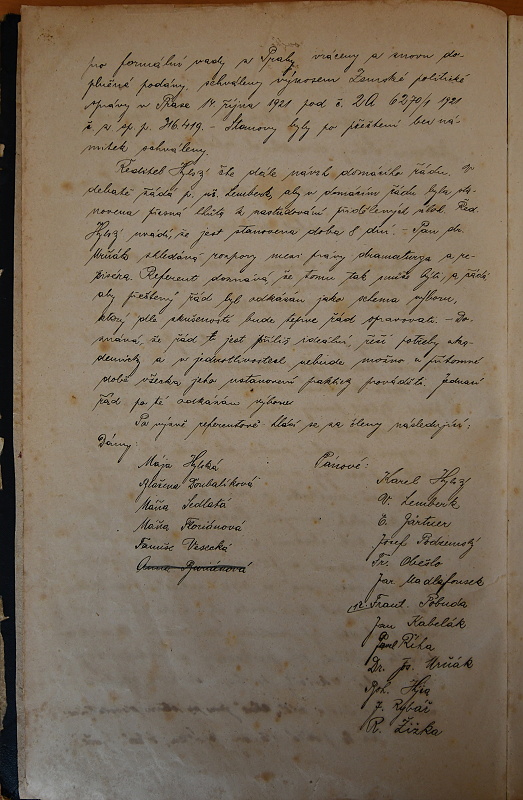 pro formální vady z Prahy vráceny a znovu do-
plněné podány, schváleny výnosem Zemské politické
správy v Praze 14 října 1921 pod č. 2A 6270/1 1921
č. z. sp. p. 316.419. – Stanovy byly po přečtení bez ná-
mitek schváleny.
Ředitel Hylský čte dále návrh domácího řádu. V
debatě žádá p. Lemberk, aby v domácím řádu byla sta-
novena přesná lhůta k nastudování přidělených úloh. Řed.
Hylský uvádí, že jest stanovena doba 8 dní. – Pan dr.
Mrňák shledává rozpory mezi právy dramaturga a re-
žiséra. Referent doznává že tomu tak může býti, a žádá
aby přečtený řád byl odkázán jako selema výboru,
který dle zkušeností bude teprve řád spravovati. – Do-
znává, že řád t. jest příliš ideální, řeší potřeby aka-
demicky a v jednotlivostech nebude možno v přítomné
době všecka jeho ustanovení prakticky prováděti. Jednací
řád po té odkázán výboru
Po výzvě referentově hlásí se za členy následující:
Dámy:
Mája Hylská
Blažena Doubalíková
Máňa Sedlatá
Máňa Floriánová
Fanuše Vesecká
Anna Buriánová
Pánové:
Karel Hylský
V. Lemberk
Č. Gärtner
Josef Podzemský
Fr. Obešlo
Jar Madlafousek
Frant. Pobuda
Jan Kabelák
Pavel Říha
Dr. Jos. Mrňák
Boh. Hýja
J. Rybář
R. Žižka